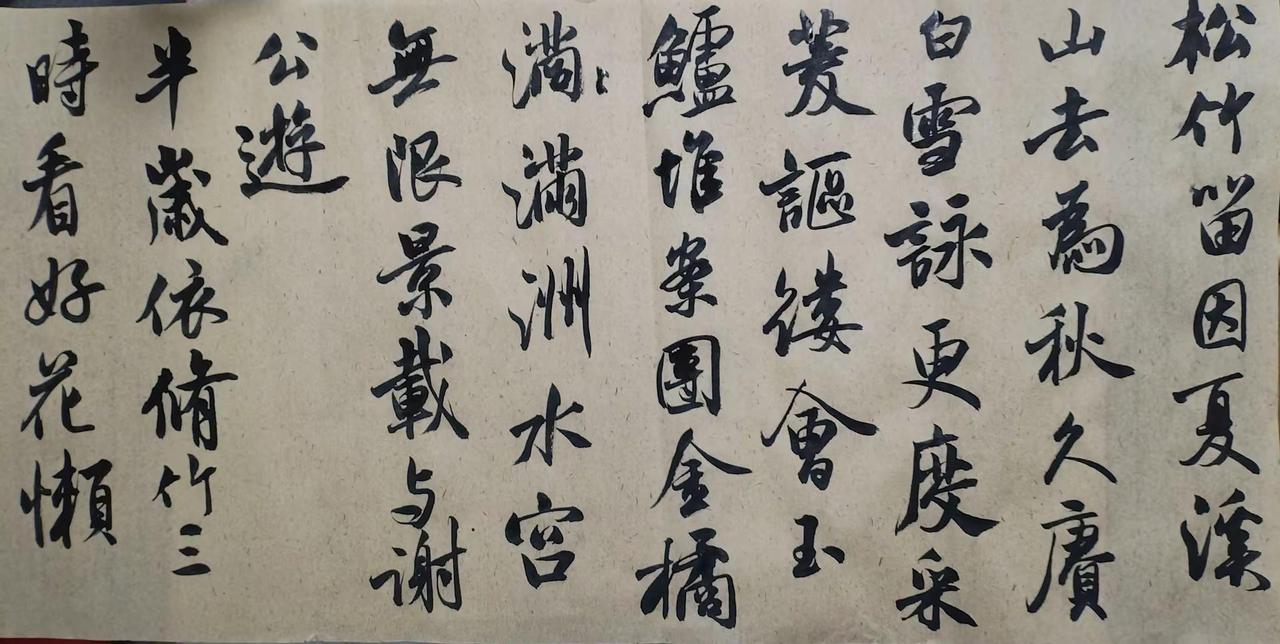 松竹留因夏溪
山去為秋久賡
白雪詠更度采
菱謳縷會玉
鱸堆案團金橘
滿滿洲水宮
無限景載与謝
公遊
半歲依脩竹三
時看好花懶